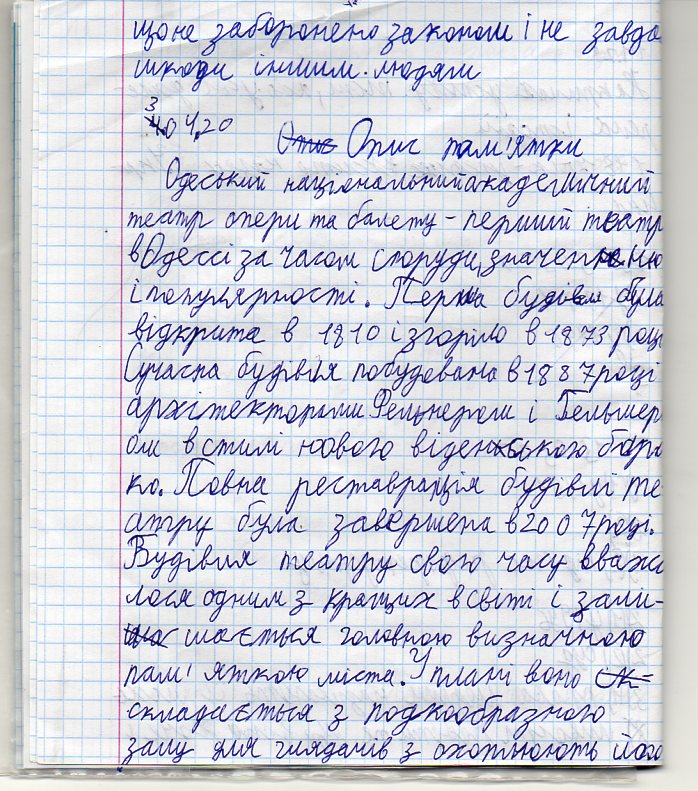 що не заборонено законом і не завда
шкоди іншим людям
30.04.20
Опис пам'ятки
Одеський національний академічний
театр опери та балету - перший театр
в Одессі за часом споруди, значенню
і популярності. Перша будівля була
відкрита в 1810 і згоріло в 1873 році
Сучасна будівля побудована в 1887 році
архітекторами Фельнером і Гельмер
ом в стилі нового віденською баро
ко. Повна реставрація будівлі те
атру була завершена в 2007 році.
Будівля театру свою часу вважа
лося одним з кращих в світі і зали-
шається головною визначною
пам'яткою міста. У плані воно
складається з подкообразною
залу для глядачів з охоплюють його